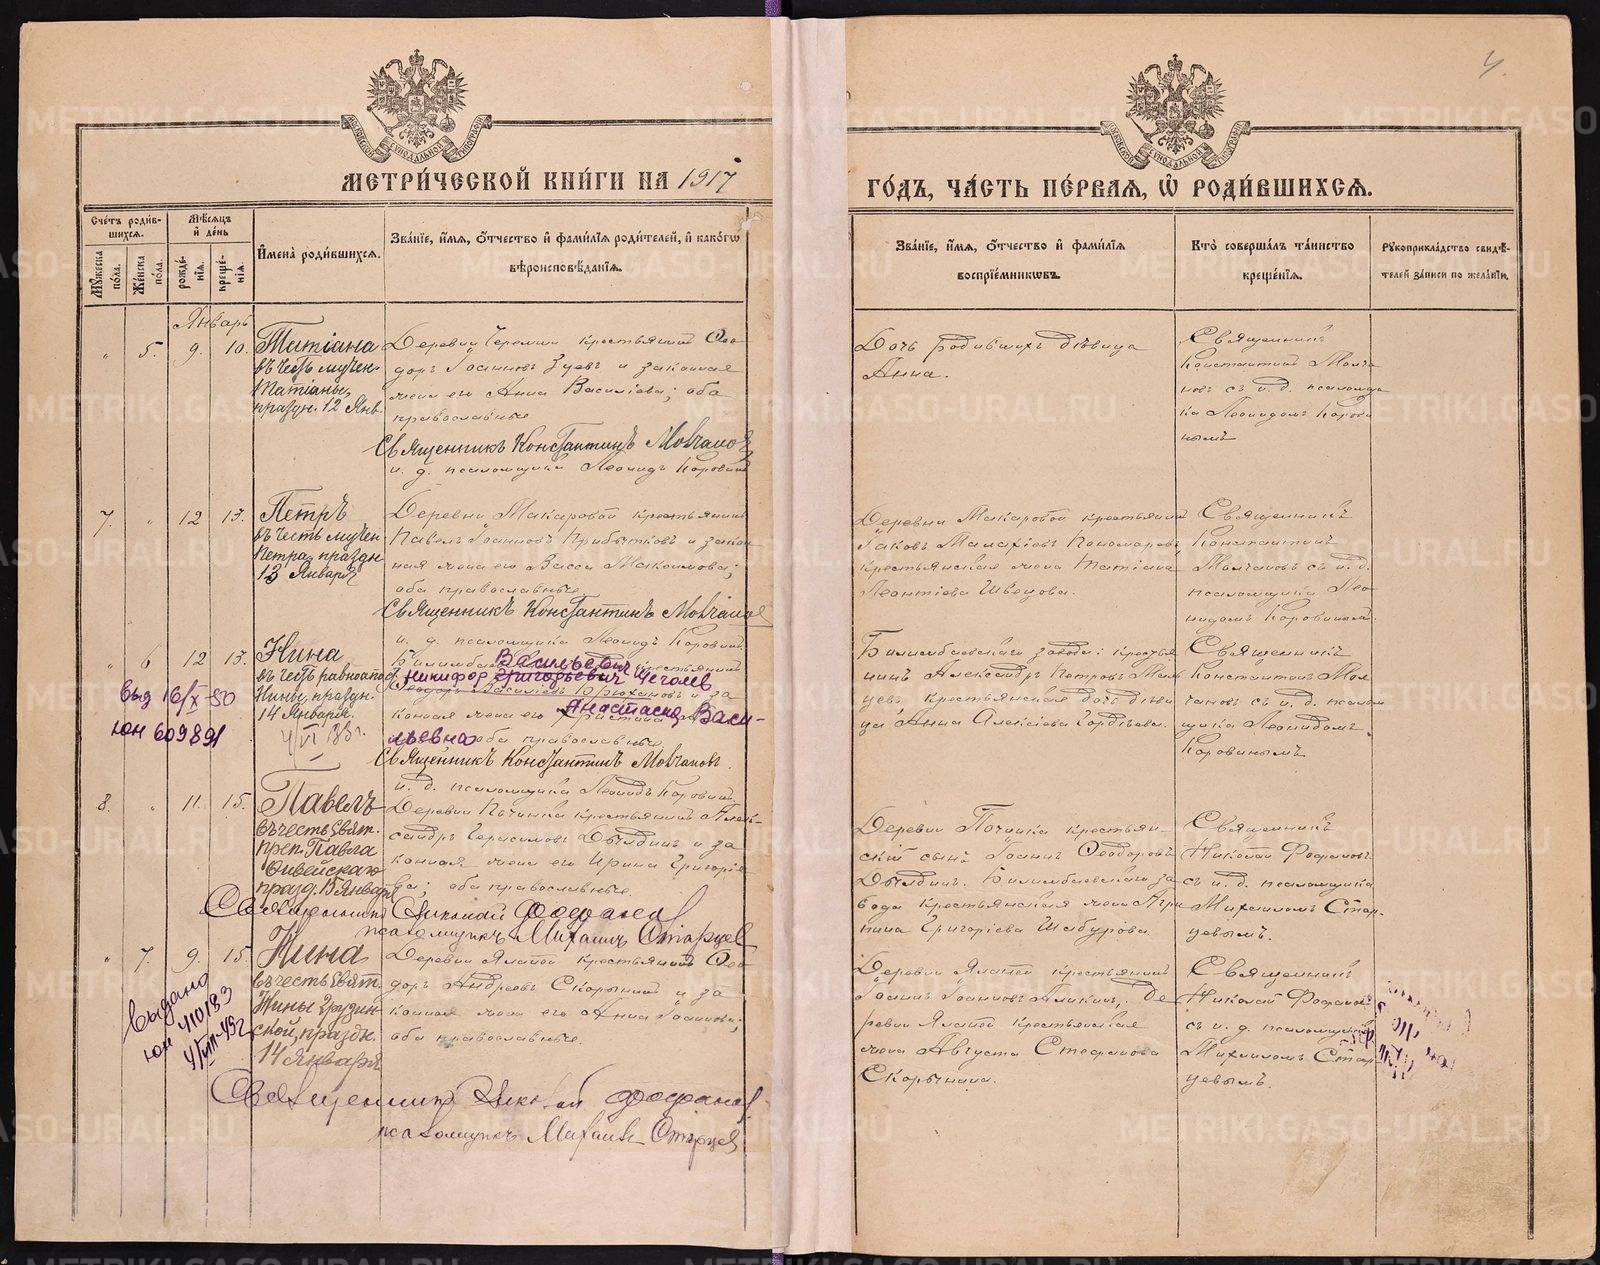 4.
МОСКОВСКОЙ СѴНОДАЛЬНОЙ ТИПОГРАФІИ
МОСКОВСКОЙ СѴНОДАЛЬНОЙ ТИПОГРАФІИ
МЕТРИ́ЧЕСКОЙ КНИ́ГИ НА 1917
ГО́ДЪ, ЧА́СТЬ ПЕ́РВАѦ, Ѡ҆ РОДИ́ВШИХСѦ.
Сче́тъ роди́в-
шихсѧ.
Мѣ́сѧцъ
и҆ де́нь
Мꙋ́жеска
по́ла.
Же́нска
по́ла.
рожде́-
нїѧ.
креще́-
нїѧ.
И҆мена̀ роди́вшихсѧ.
Зва́нїе, и҆́мѧ, ѻ҆́тчество и҆ фами́лїѧ роди́телей, и҆ како́гѡ
вѣроисповѣ́данїѧ.
Зва́нїе, и҆́мѧ, ѻ҆́тчество и҆ фами́лїѧ
воспрїе́мникѡвъ.
Кто̀ соверша́лъ та́инство
креще́нїѧ.
Рꙋкоприкла́дство свидѣ́-
телей за́писи по жела́нїю.
Январь
" 5. 9. 10.
Татіана
въ честь мучен.
Татіаны,
праздн. 12 Янв.
Деревни Черемши крестьянинъ Ѳео-
доръ Іоанновъ Зуевъ и законная
жена его Анна Васильева; оба
православные
Священникъ Константинъ Молчановъ
и. д. псаломщика Леонидъ Коровинъ
Дочь родившихъ дѣвица
Анна.
Священникъ
Константинъ Молча
новъ съ и. д. псаломщи
ка Леонидомъ Корови
нымъ
7. " 12 13.
Петръ
въ честь мучен
Петра, праздн
13 Января
Деревни Макаровой крестьянинъ
Павелъ Іоанновъ Прибытковъ и закон
ная жена его Васса Максимова;
оба православные
Священникъ Константинъ Молчановъ
и. д. псаломщика Леонидъ Коровинъ
Деревни Макаровой крестьянинъ
Іаковъ Малахіевъ Пономаревъ,
крестьянская жена Татіана
Леонтіева Швецова.
Священникъ
Константинъ
Молчановъ съ и. д.
псаломщика Лео-
нидомъ Коровинымъ.
" 6 12 13.
Нина
въ честь равноапост.
Нины, праздн.
14 Января.
4/VI 33 г.
Выд 16/X-50
юн 609891
Билимба крестьянинъ
Васильевич
Никифор Григорьевич Щеголев
Ѳеодоръ Васильевъ и за
конная жена его
Анастасия Васи-
льевна
оба православные.
Священникъ Константинъ Молчановъ.
и. д. псаломщика Леонидъ Коровинъ.
Билимбаевскаго завода: крестья
нинъ Александръ Петровъ Маль
цевъ, крестьянская дочь дѣви
ца Анна Алексіева Гордѣева.
Священникъ
Константинъ Мол
чановъ съ и. д. псалом
щика Леонидомъ
Коровинымъ
8. " 11. 15.
Павелъ
въ честь Свят.
преп. Павла
Ѳивейскаго
празд. 15 Января
Деревни Починка крестьянинъ Алек-
сандръ Герасимовъ Дылдинъ и за
конная жена его Ирина Григоріе
ва; оба православные.
Священникъ Николай Фофановъ
псаломщикъ Михаилъ Старцев
Деревни Починка крестьян-
скій сынъ Іоаннъ Ѳеодоровъ
Дылдинъ. Билимбаевскаго за
вода крестьянская жена Агри
пина Григоріева Шабурова
Священникъ
Николай Фофановъ
съ и. д. псаломщика
Михаиломъ Стар-
цевымъ.
" 7. 9. 15.
Нина
въ честь Свят.
Нины Грузин
ской, праздн.
14 Января
Выдано
юн 410193
4/VIII-49г
Деревни Ялапой крестьянинъ Ѳео
доръ Андреевъ Скорынинъ и за
конная жена его Анна Іоаннова;
оба православные.
Священникъ Николай Фофановъ
псаломщикъ Михаилъ Старцев
Деревни Ялапой крестьянинъ
Іоаннъ Іоанновъ Аликинъ, де
ревни Ялапой крестьянская
жена Августа Стефанова
Скорынина.
Священникъ
Николай Фофановъ
съ и. д. псаломщика
Михаиломъ Стар
цевымъ.
METRIKI.GASO-URAL.RU